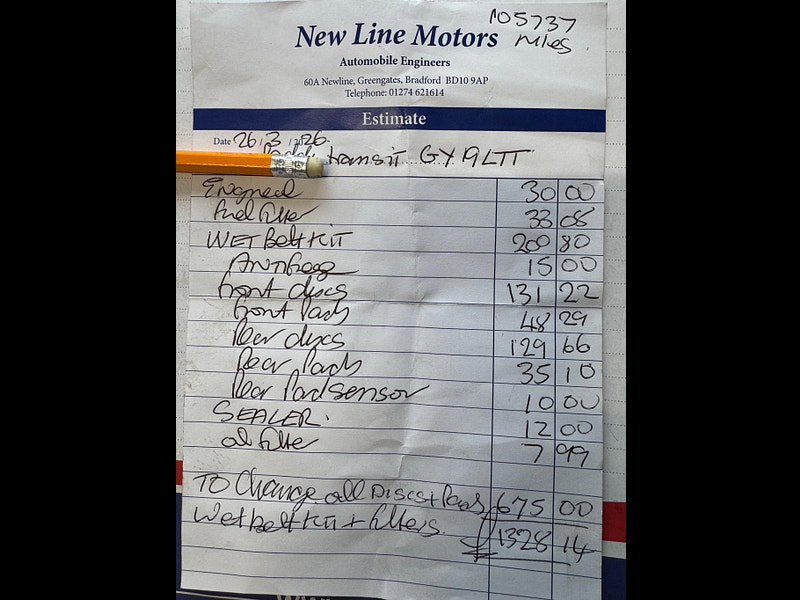 105737
miles
New Line Motors
Automobile Engineers
60A Newline, Greengates, Bradford BD10 9AP
Telephone: 01274 621614
Estimate
Date 26.3.26.
transit GY19LTT
Engine oil 30 00
fuel filter 33 08
WET Belt Kit 200 80
Antifreeze 15 00
front discs 131 22
front Pads 48 29
Rear discs 129 66
Rear Pads 35 10
Rear Pad sensor 10 00
SEALER. 12 00
oil filter 7 99
TO Change all Discs + Pads 675 00
Wet belt Kit + filters. £1328 14